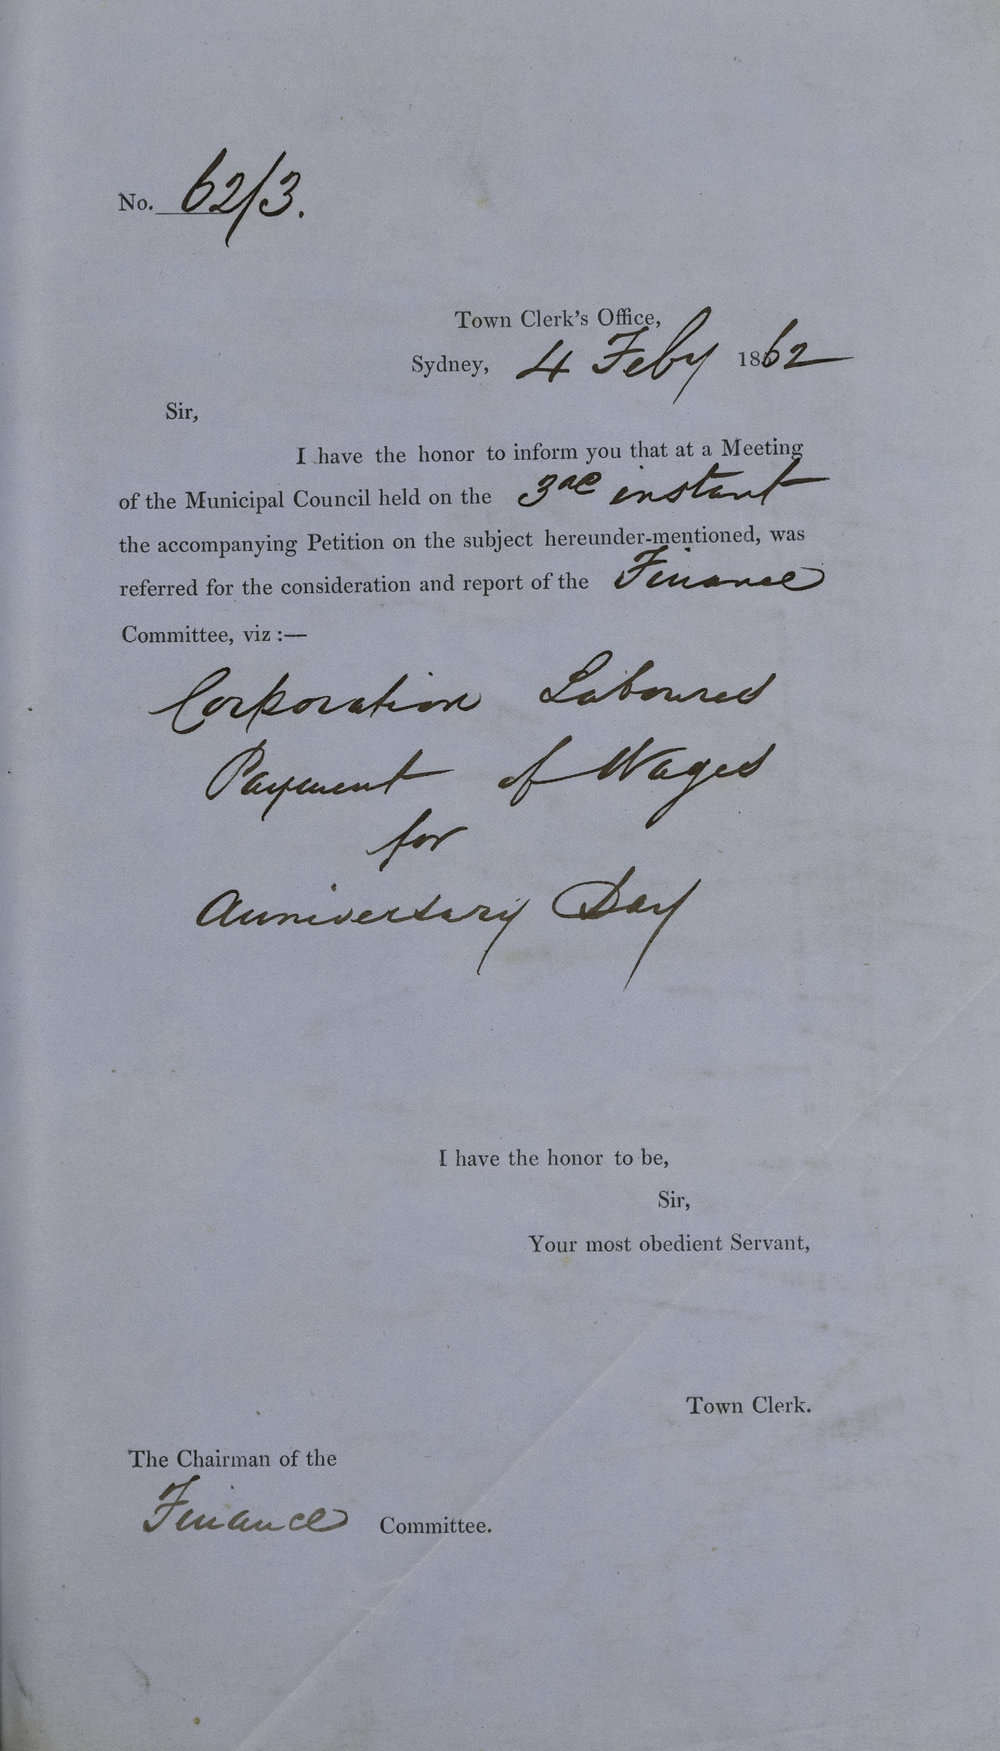 No. 62/3.
Town Clerk's Office,
Sydney, 4 Feby 1862
Sir,
I have the honor to inform you that at a Meeting
of the Municipal Council held on the 3rd instant
the accompanying Petition on the subject hereunder-mentioned, was
referred for the consideration and report of the Finance
Committee, viz :—
Corporation Labourers
Payment of Wages
for
Anniversary Day
I have the honor to be,
Sir,
Your most obedient Servant,
Town Clerk.
The Chairman of the
Finance Committee.